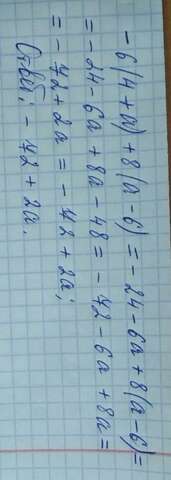 -6(4+a)+8(a-6)=-24-6a+8(a-6)=
=-24-6a+8a-48=-72-6a+8a=
=-72+2a=-72+2a;
Ответ: -72+2a.